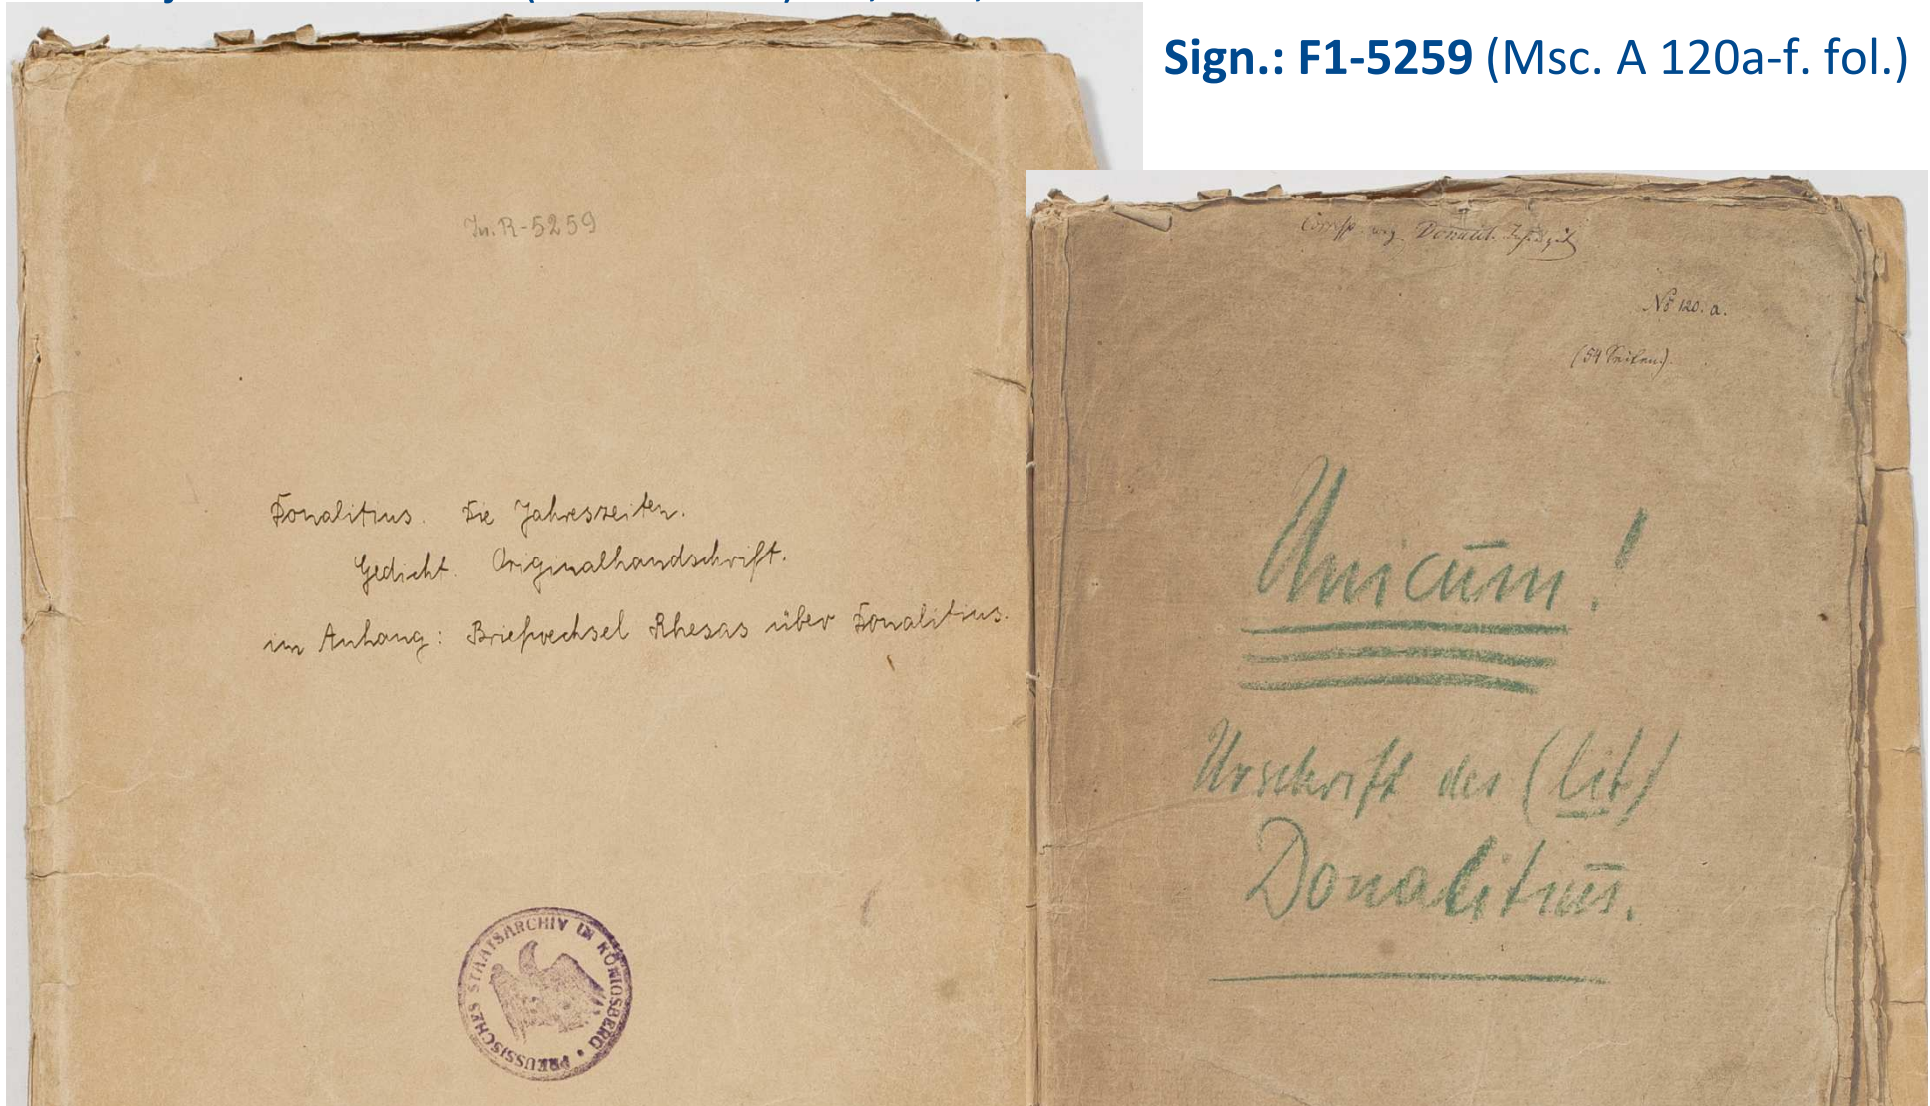 Sign.: F1-5259 (Msc. A 120a-f. fol.)
In. R-5259
Donalitius. Die Jahreszeiten.
Gedicht. Originalhandschrift.
im Anhang: Briefwechsel Rhesas über Donalitius.
PREUSSISCHES STAATSARCHIV IN KÖNIGSBERG •
Corresp weg Donalit.
No 120. a.
(54 Seiten).
Unicum!
Urschrift des (lit)
Donalitius.